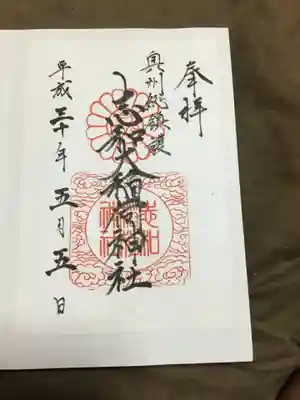 奉拝
奥州総鎮護
志和稲荷神社
平成三十年五月五日
志和
神社